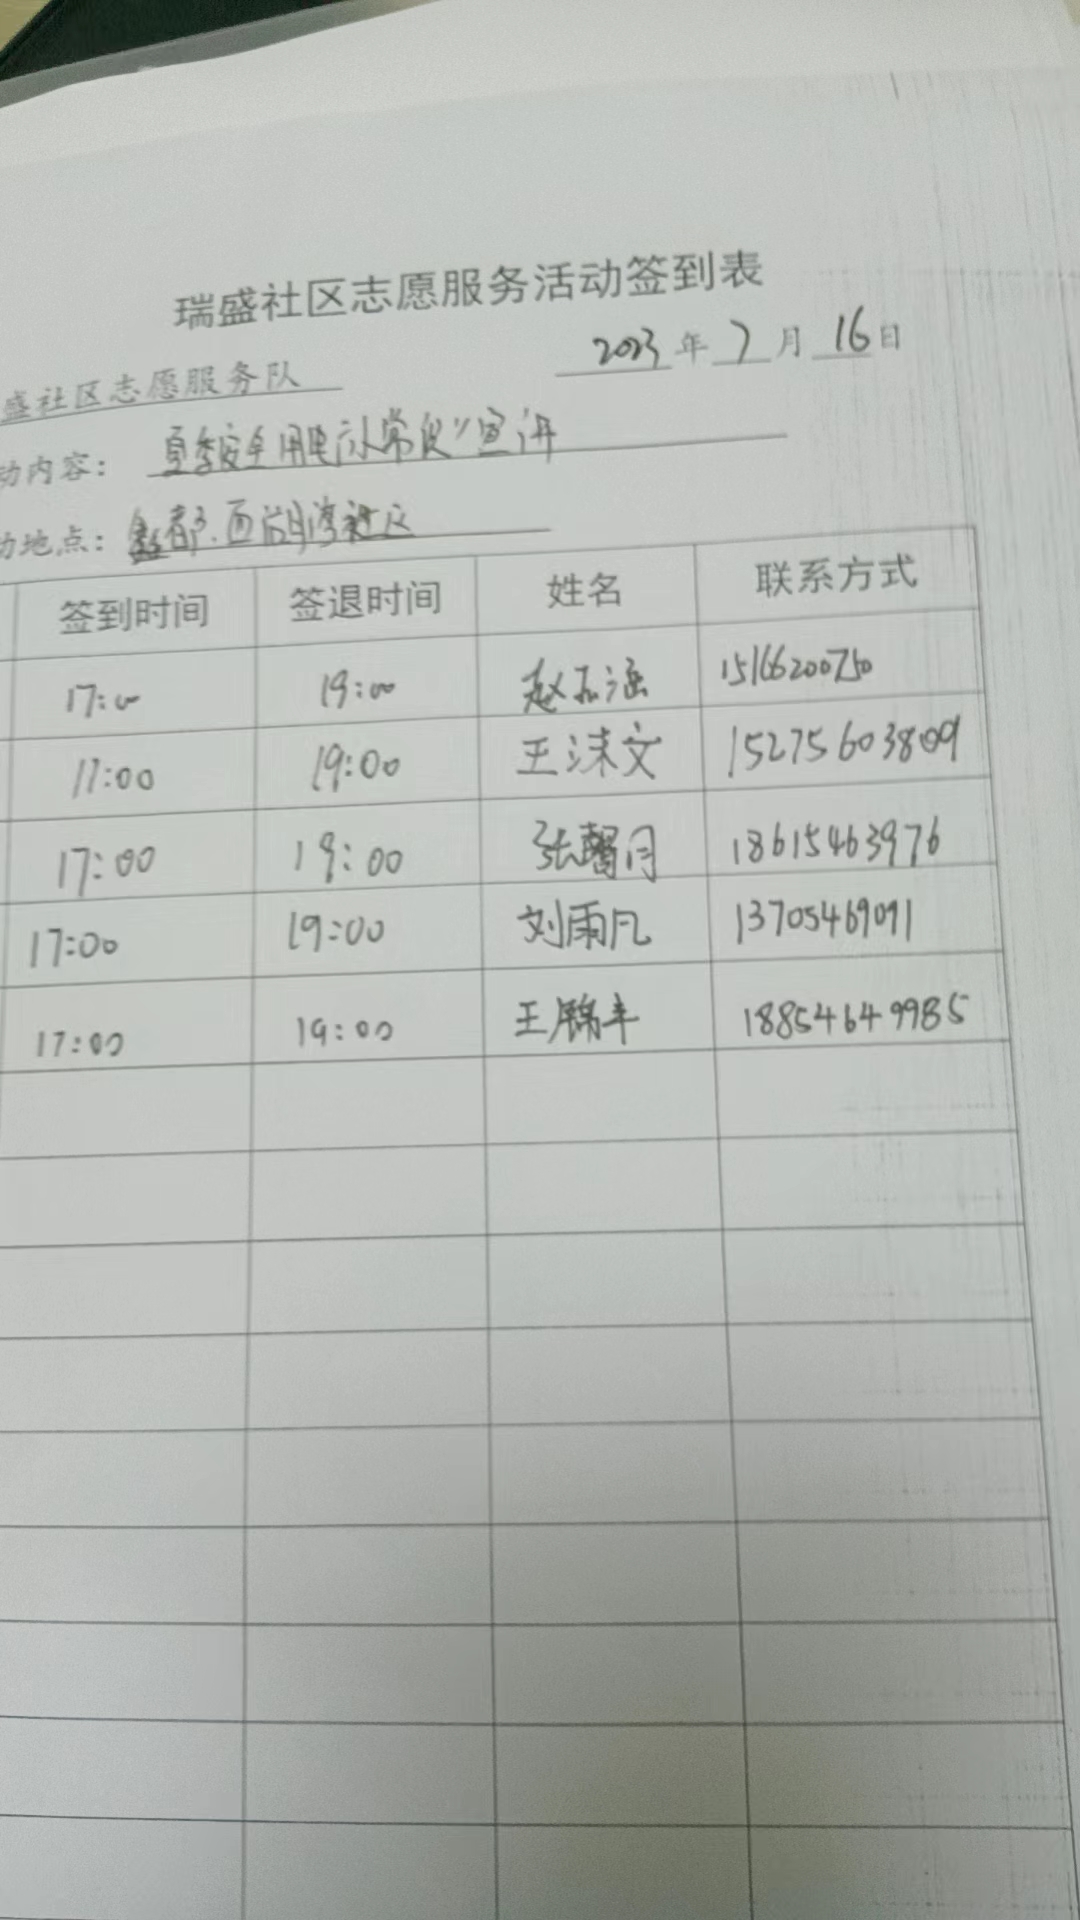 瑞盛社区志愿服务活动签到表
2023年7月16日
盛社区志愿服务队
动内容：夏季安全用电 常识"宣讲
动地点：鑫都·西湖湾社区
签到时间 签退时间 姓名 联系方式
17:00 19:00 赵 涵 15166200750
17:00 19:00 王沫文 15275603809
17:00 19:00 张馨月 18615463976
17:00 19:00 刘雨凡 13705469091
17:00 19:00 王 锦丰 18854649985